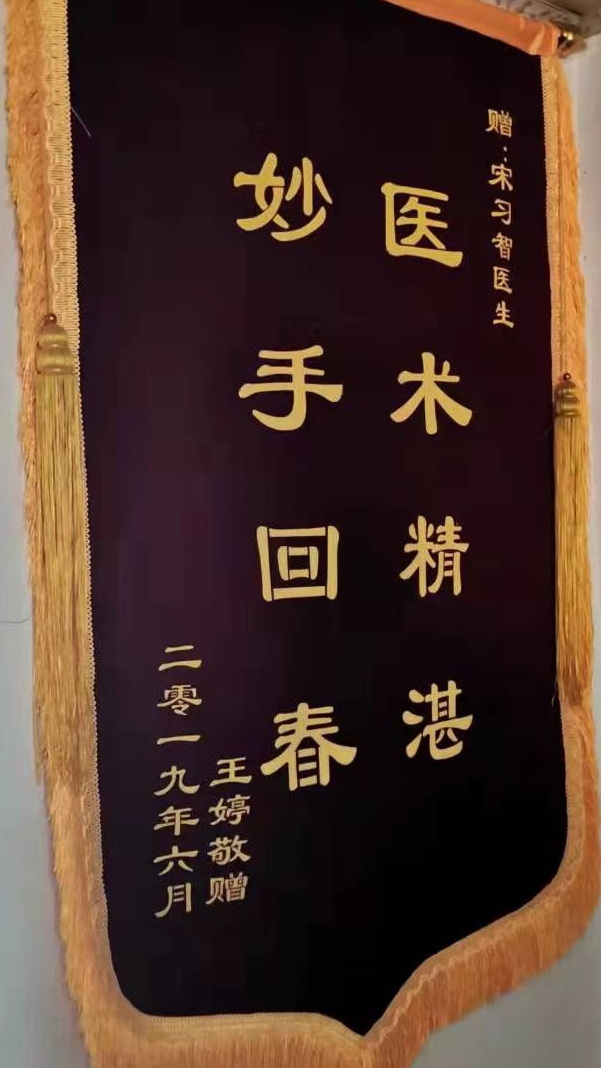 赠:宋习智医生
医术精湛
妙手回春
王婷敬赠
二零一九年六月